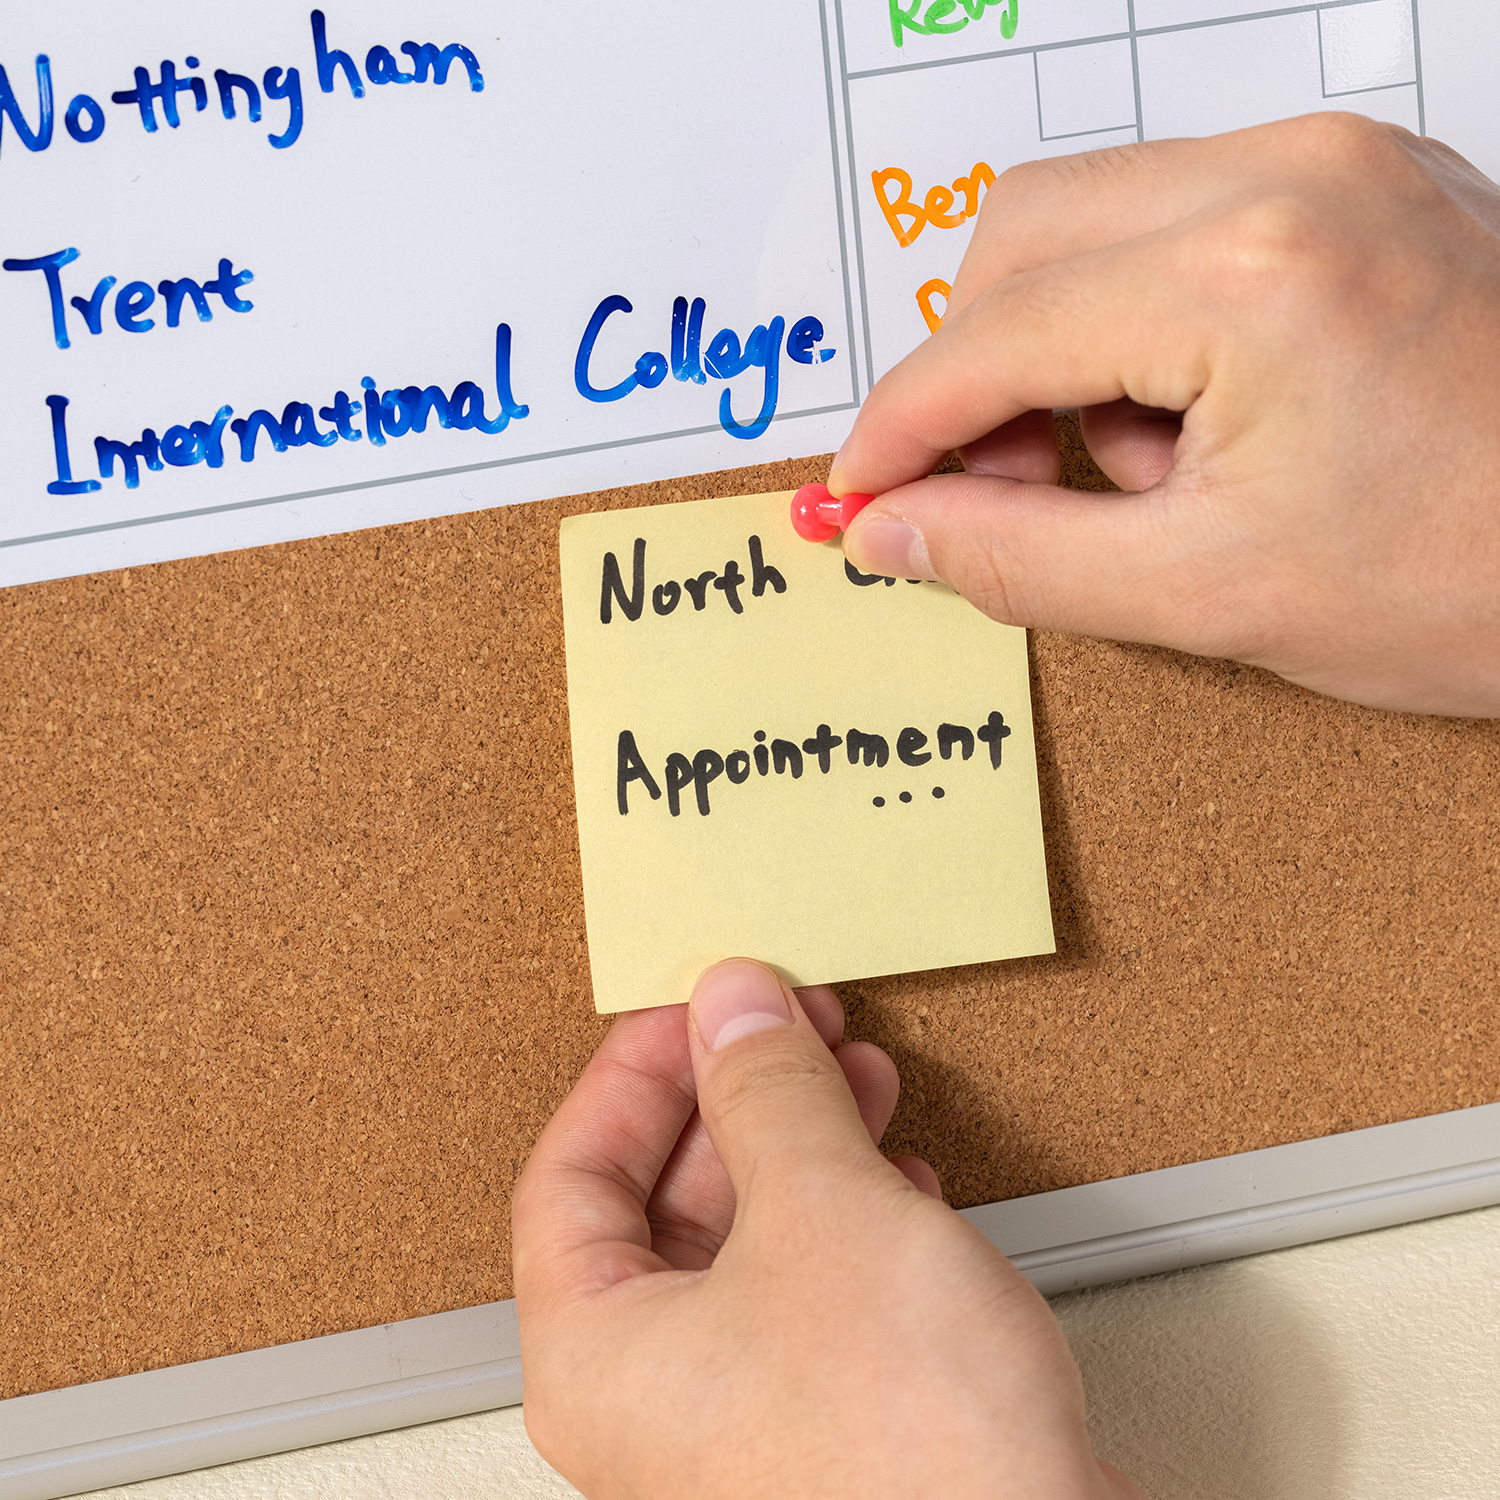 Nottingham
Trent
International College
Ben
North
Appointment
...